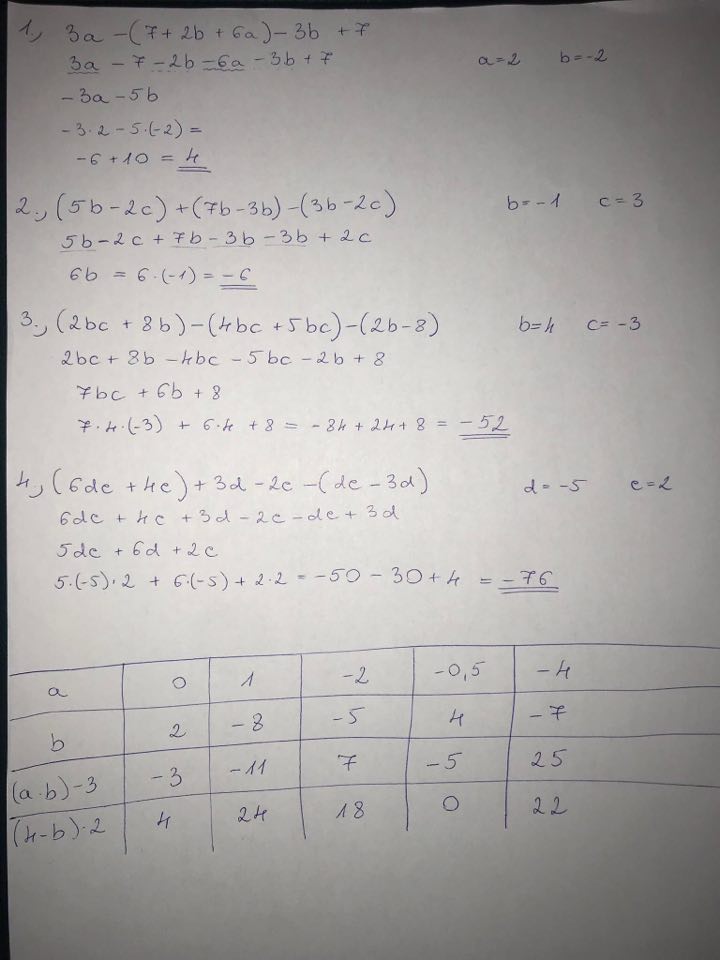 1., 3a - (7 + 2b + 6a) - 3b + 7
3a - 7 - 2b - 6a - 3b + 7 a = 2 b = -2
- 3a - 5b
- 3·2 - 5·(-2) =
- 6 + 10 = 4
2., (5b - 2c) + (7b - 3b) - (3b - 2c) b = -1 c = 3
5b - 2c + 7b - 3b - 3b + 2c
6b = 6·(-1) = -6
3., (2bc + 8b) - (4bc + 5bc) - (2b - 8) b = 4 c = -3
2bc + 8b - 4bc - 5bc - 2b + 8
7bc + 6b + 8
7·4·(-3) + 6·4 + 8 = - 84 + 24 + 8 = - 52
4., (6de + 4e) + 3d - 2e - (de - 3d) d = -5 e = 2
6de + 4e + 3d - 2e - de + 3d
5de + 6d + 2e
5·(-5)·2 + 6·(-5) + 2·2 = -50 - 30 + 4 = - 76
a 0 1 -2 -0,5 -4
b 2 -8 -5 4 -7
(a·b) - 3 -3 -11 7 -5 25
(4-b)·2 4 24 18 0 22